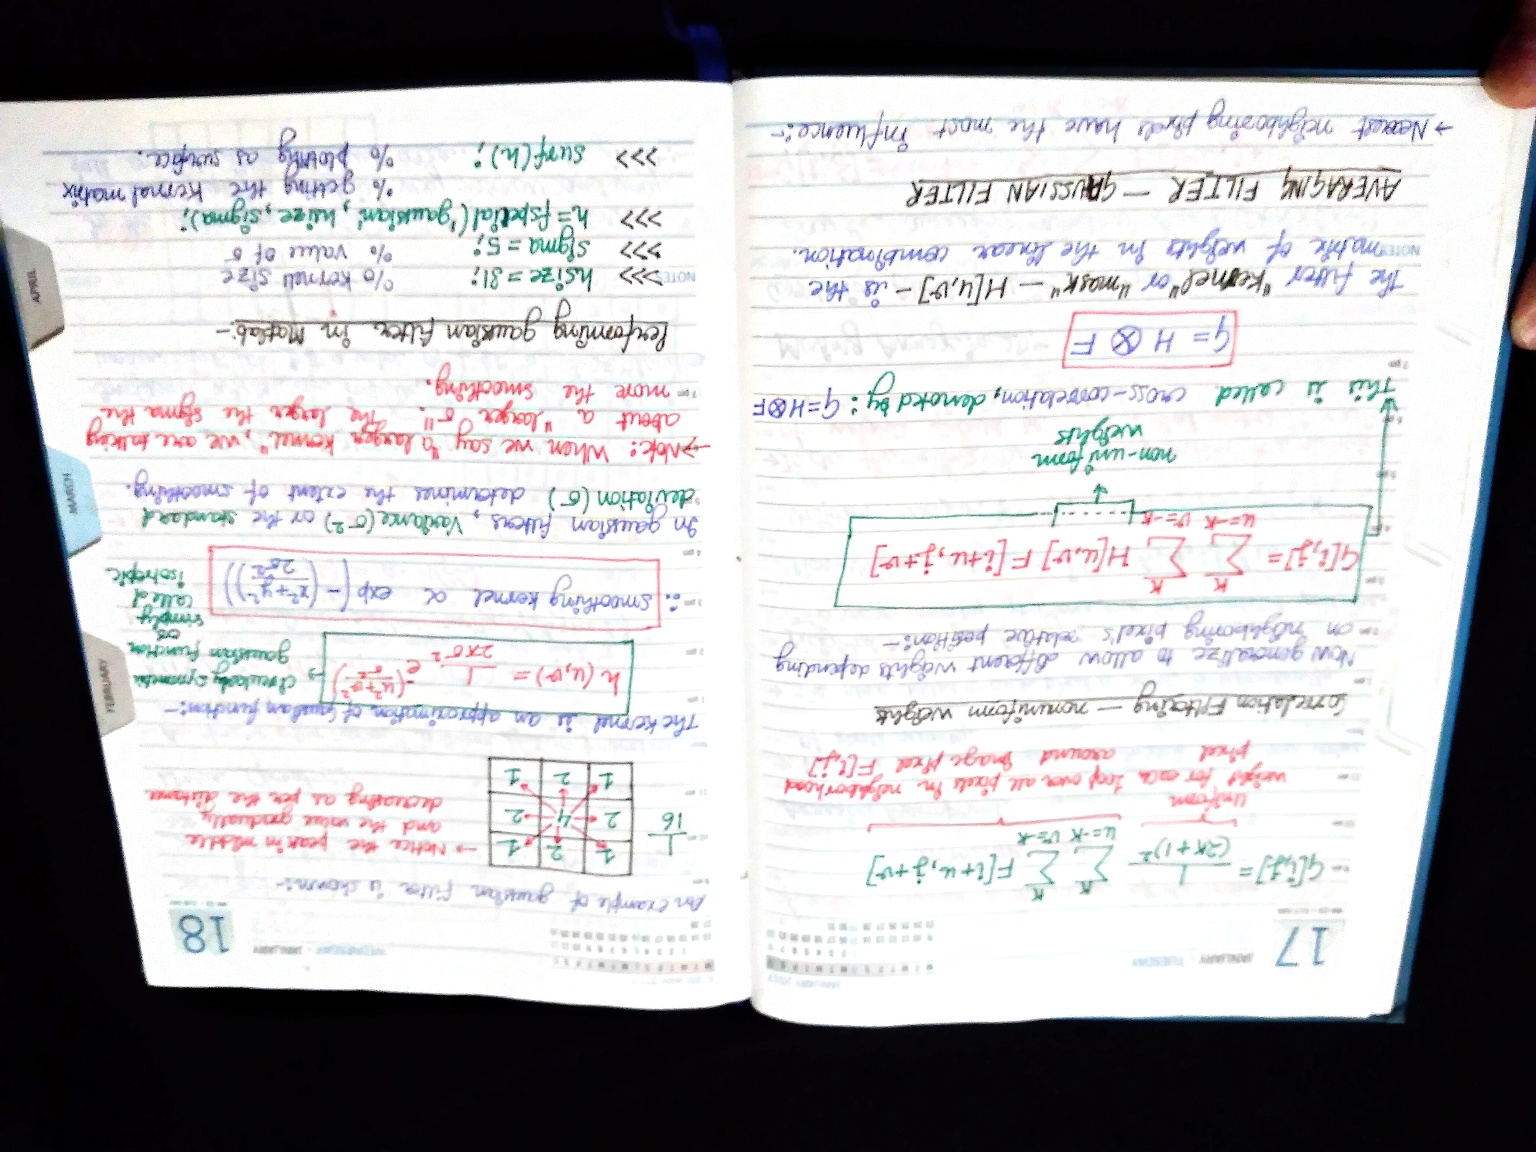 17
JANUARY - TUESDAY
G[i,j] = 1/(2K+1)² Σ(u=-K to K) Σ(v=-K to K) F[i+u, j+v]
Uniform weight for each pixel
Loop over all pixels in neighborhood around image pixel F[i,j]
Correlation Filtering — nonuniform weights
Now generalize to allow different weights depending
on neighboring pixel's relative position:-
G[i,j] = Σ(u=-K to K) Σ(v=-K to K) H[u,v] F[i+u, j+v]
non-uniform
weights
This is called cross-correlation, denoted by: G=H⊗F
G = H ⊗ F
The filter "kernel" or "mask" — H[u,v] - is the
NOTES
matrix of weights in the linear combination.
AVERAGING FILTER — GAUSSIAN FILTER
→ Nearest neighboring pixels have the most influence:-
18
WEDNESDAY - JANUARY
An example of gaussian filter is shown:-
1/16
1 2 1
2 4 2
1 2 1
→ Notice the peak in middle
and the value gradually
decreasing as per the distance
The kernel is an approximation of Gaussian function:-
h(u,v) = 1/(2πσ²) e^-((u²+v²)/σ²)
→ circularly symmetric
gaussian function
or
simply
called
isotropic
∴ smoothing kernel ∝ exp(-((x²+y²)/2σ²))
In gaussian filters, Variance(σ²) or the standard
deviation(σ) determines the extent of smoothing.
→ Note: When we say "a larger kernel", we are talking
about a "larger σ". The larger the sigma the
more the smoothing.
Performing gaussian filter in Matlab:-
NOTES
>>> hsize = 31; % kernel size
>>> sigma = 5; % value of σ
>>> h = fspecial('gaussian', hsize, sigma);
% getting the kernel matrix
>>> surf(h); % plotting as surface.
FEBRUARY
MARCH
APRIL